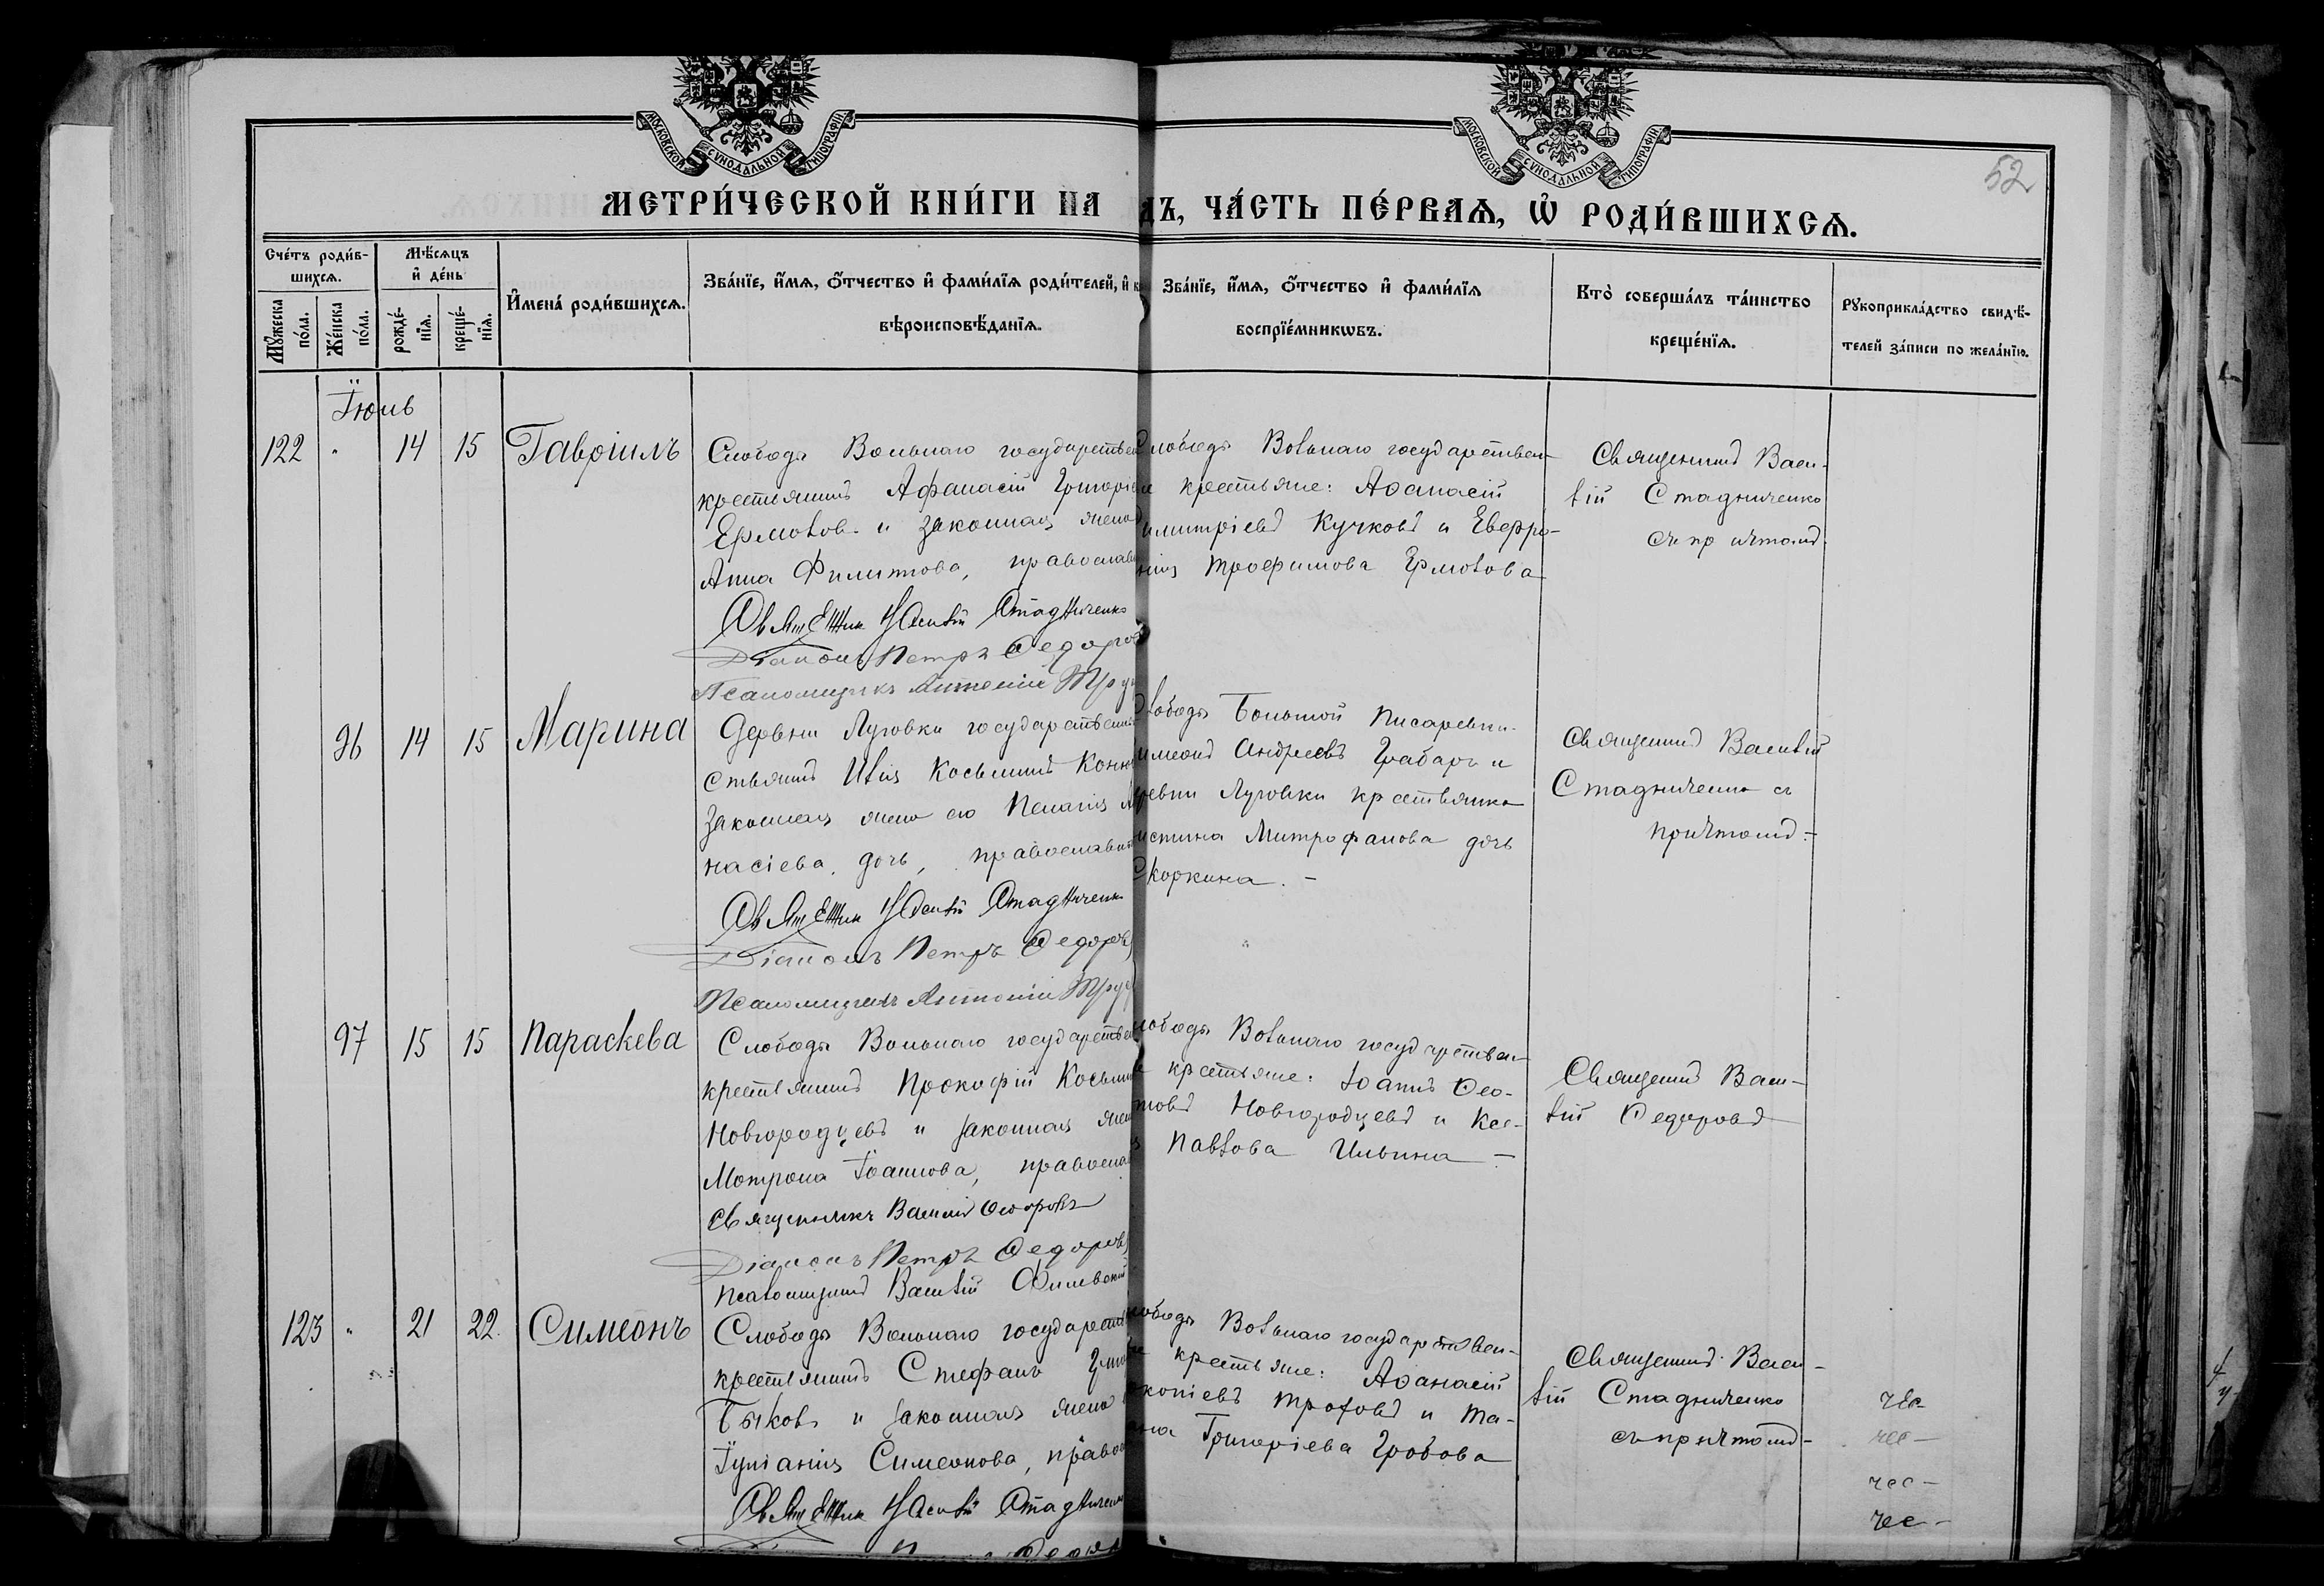 МОСКОВСКОЙ СѴНОДАЛЬНОЙ ТИПОГРАФІИ
МОСКОВСКОЙ СѴНОДАЛЬНОЙ ТИПОГРАФІИ
52
МЕТРИ́ЧЕСКОЙ КНИ́ГИ НА
дъ, ЧА́СТЬ ПЕ́РВАѦ, Ѡ҆ РОДИ́ВШИХСѦ.
Сче́тъ роди́в-
шихсѧ.
Мꙋ́жеска
по́ла.
Же́нска
по́ла.
Мѣ́сѧцъ
и҆ де́нь
рожде́-
нїѧ.
креще́-
нїѧ.
И҆мена̀ роди́вшихсѧ.
Зва́нїе, и҆́мѧ, ѻ҆́тчество и҆ фами́лїѧ роди́телей, и҆
вѣроисповѣ́данїѧ.
Зва́нїе, и҆́мѧ, ѻ҆́тчество и҆ фами́лїѧ
воспрїе́мникѡвъ.
Кто̀ соверша́лъ та́инство
креще́нїѧ.
Рꙋкоприкла́дство свидѣ́-
телей за́писи по жела́нїю.
Іюль
122 " 14 15 Гавріилъ
Слободы Вольнаго государствен
крестьянинъ Афанасій Григоріе
Ермоловъ и законная жена
Анна Филиппова, православн
Священник Василій Стадниченко
Діаконъ Петръ Федоров
Псаломщикъ Антоній Тру
лободы Вольнаго государствен-
е крестьяне: Аѳанасій
имитріевъ Кучковъ и Евфро-
нія Трофимова Ермолова
Священникъ Васи-
лій Стадниченко
съ причтомъ.
96 14 15 Марина
Деревни Луговки государственн
стьянинъ Илія Косьминъ Конн
законная жена его Пелагія А
насіева дочь, православн
Священник Василій Стадниченко
Діаконъ Петръ Федоровъ
Псаломщикъ Антоній Тру
лободы Большой Писаревки
имеонъ Андреевъ Грабарь и
ревни Луговки крестьянка
истина Митрофанова дочь
Скоркина. –
Священникъ Василій
Стадниченко съ
причтомъ. –
97 15 15 Параскева
Слободы Вольнаго государствен
крестьянинъ Прокофій Косьмин
Новгородцевъ и законная жен
Мотрона Іоаннова, правосла
Священникъ Василій Ѳеодоровъ
Діаконъ Петръ Федоровъ
Псаломщикъ Василій
лободы Вольнаго государствен-
е крестьяне: Іоаннъ Ѳео-
товъ Новгородцевъ и Ксе-
я Павлова Ильина –
Священникъ Васи-
лій Федоровъ
123 " 21 22. Симеонъ
Слободы Вольнаго государств
крестьянинъ Стефанъ
Быковъ и законная жена
Іуліанія Симеонова, право
Священник Василій Стадниченко
лободы Вольнаго государствен-
е крестьяне: Аѳанасій
копіевъ и Та-
на Григоріева Гробова
Священникъ Васи-
лій Стадниченко
съ причтомъ –